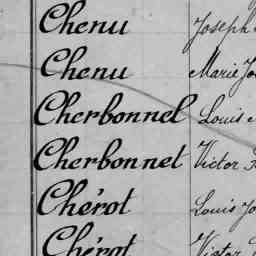 Chenu Joseph
Chenu Marie
Cherbonnel Louis
Cherbonnet Victor
Chérot Louis
Chérot Victor